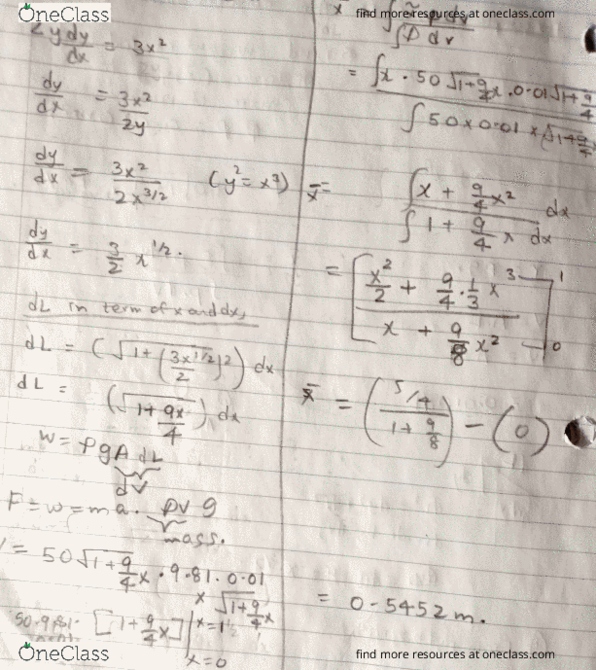 OneClass
find more resources at oneclass.com
2y dy/dx = 3x²
dy/dx = 3x²/2y
dy/dx = 3x²/2x^3/2 (y² = x³)
dy/dx = 3/2 x^1/2.
dL in term of x and dx,
dL = (√1 + (3x^1/2/2)²) dx
dL = (√1 + 9x/4) dx
W = ρgA dL
dV
F = W = ma. ρV g
mass.
= 50√1 + 9/4 x · 9.81 · 0.01
x √1 + 9/4 x
50·9.81· [1 + 9/4 x] | x = 1
x = 0
∫ρ dv
= ∫x · 50 √1 + 9/4 x · 0.01 √1 + 9/4
∫50 x 0.01 x √1 + 9/4
x̄ = ∫x + 9/4 x² dx
∫1 + 9/4 x dx
= [x²/2 + 9/4 · 1/3 x³ / x + 9/8 x²] 1 0
x̄ = (5/4 / 1 + 9/8) - (0)
= 0.5452 m.
OneClass
find more resources at oneclass.com